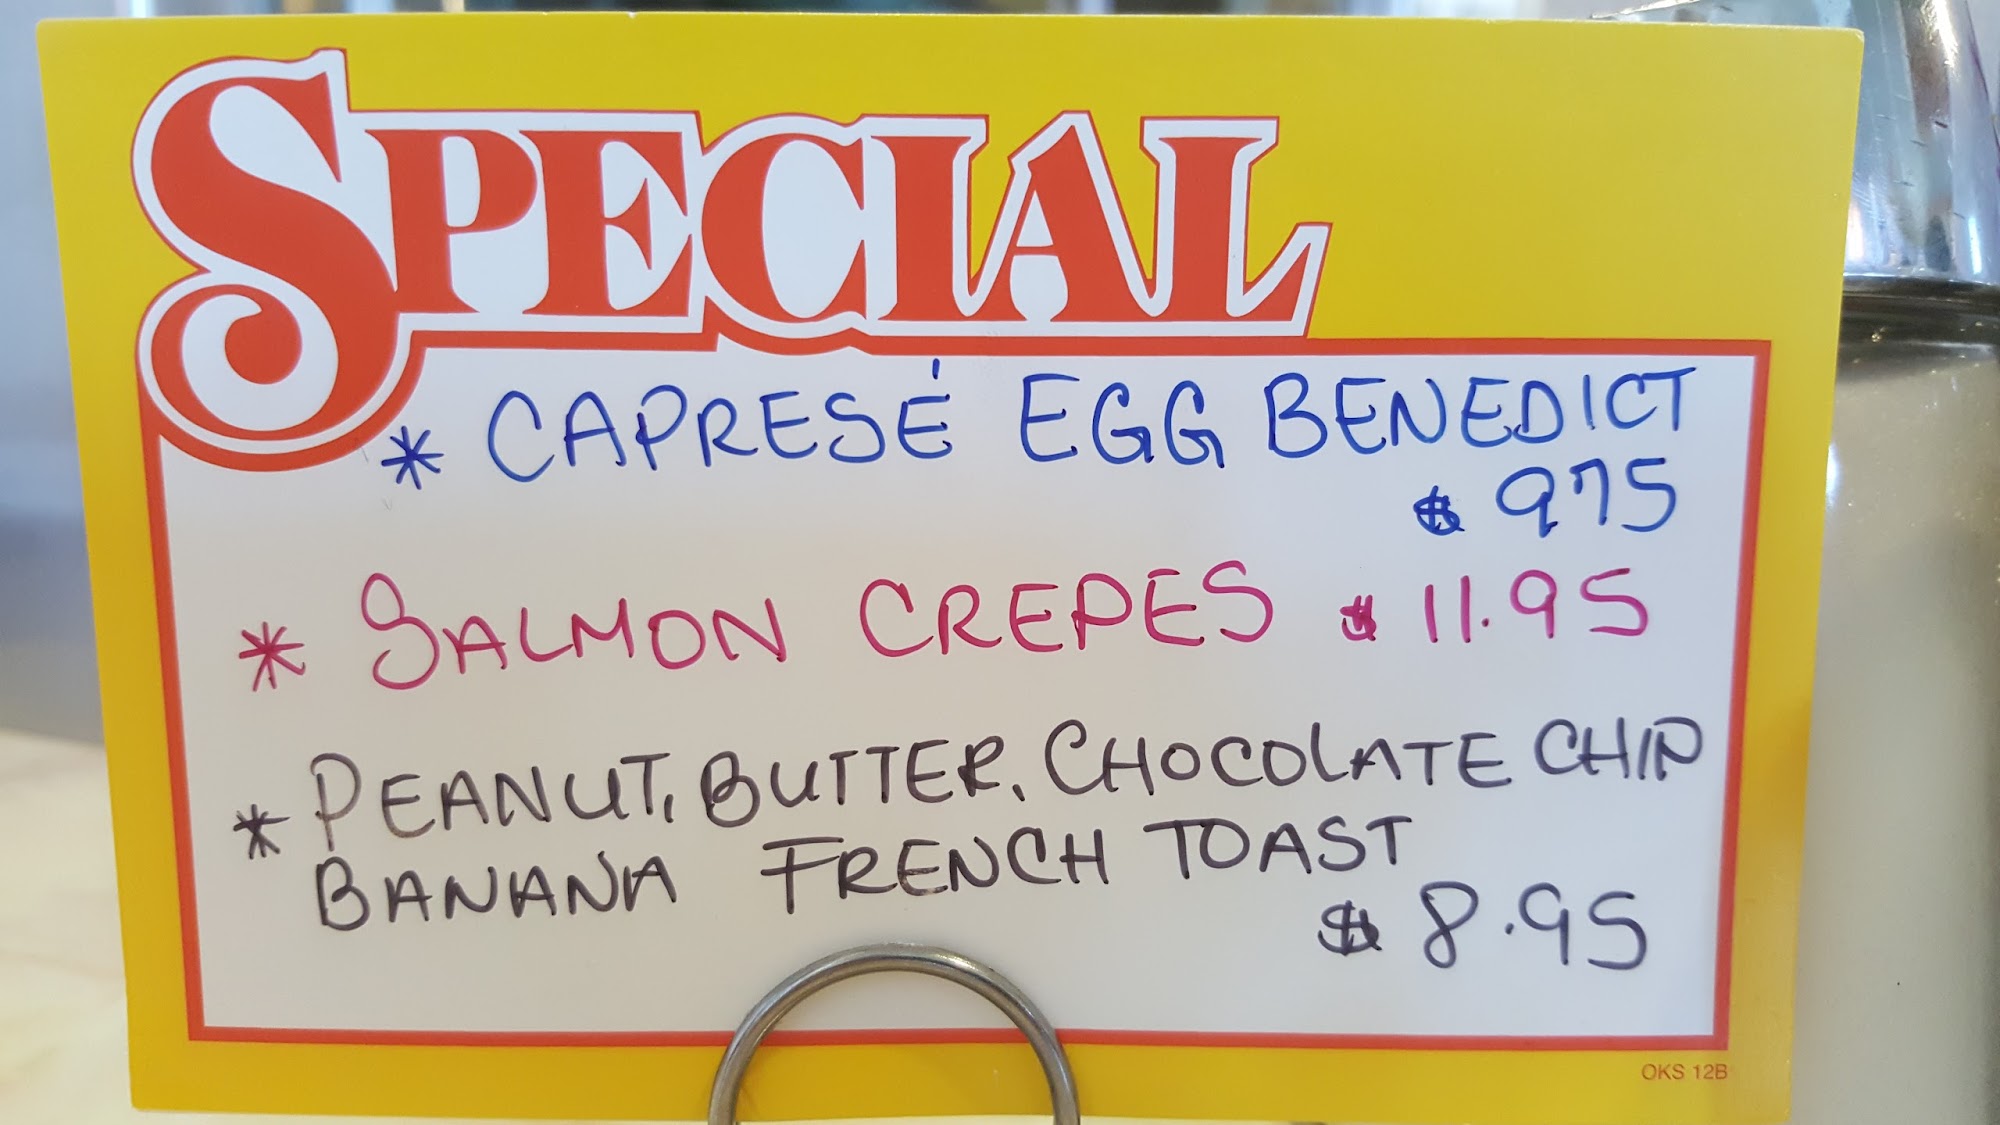 SPECIAL
* CAPRESÉ EGG BENEDICT
$ 975
* SALMON CREPES $ 11.95
* PEANUT, BUTTER, CHOCOLATE CHIP
BANANA FRENCH TOAST
$ 8.95
OKS 12B